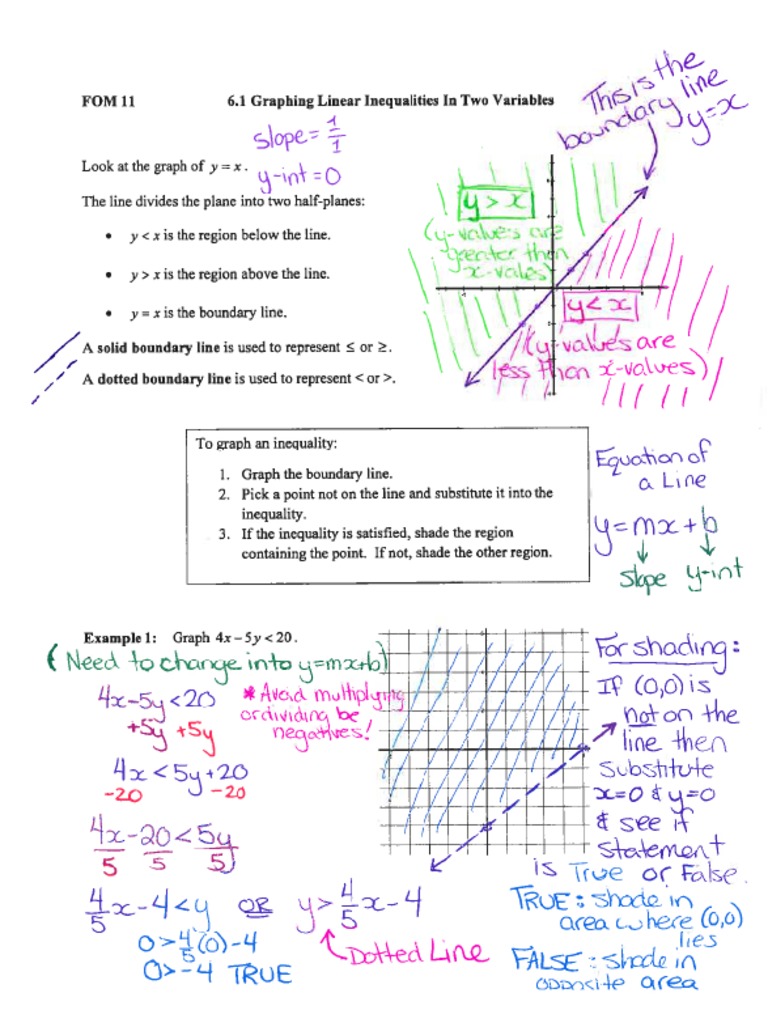 FOM 11
6.1 Graphing Linear Inequalities In Two Variables
This is the
boundary line
y=x
slope = 1/1
Look at the graph of y = x.
y-int = 0
The line divides the plane into two half-planes:
• y < x is the region below the line.
• y > x is the region above the line.
• y = x is the boundary line.
A solid boundary line is used to represent ≤ or ≥.
A dotted boundary line is used to represent < or >.
y > x
(y-values are
greater then
x-vales
y < x
(y-values are
less than x-values)
To graph an inequality:
1. Graph the boundary line.
2. Pick a point not on the line and substitute it into the
inequality.
3. If the inequality is satisfied, shade the region
containing the point. If not, shade the other region.
Equation of
a Line
y=mx+b
slope y-int
Example 1: Graph 4x – 5y < 20.
(Need to change into y=mx+b)
4x-5y<20
+5y +5y
4x < 5y+20
-20 -20
4x-20<5y
5 5 5
4/5x-4<y OR y>4/5x-4
0>4/5(0)-4
0>-4 TRUE
* Avoid multiplying
or dividing be
negatives!
Dotted Line
For shading:
If (0,0) is
not on the
line then
substitute
x=0 & y=0
& see if
statement
is True or False.
TRUE: shade in
area where (0,0)
lies
FALSE: shade in
opposite area